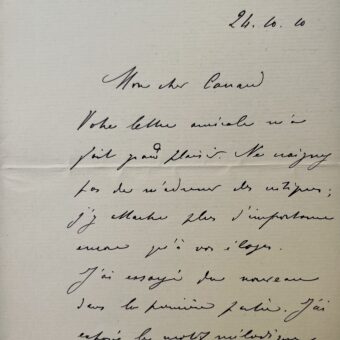 24. 10. 10
Mon cher Canard
Votre lettre amicale m'a
fait grand plaisir. Ne craignez
pas de m'adresser des critiques;
j'y attache plus d'importance
encore qu'à vos éloges.
J'ai essayé du nouveau
dans la première partie. J'ai
exposé les motifs mélodiques